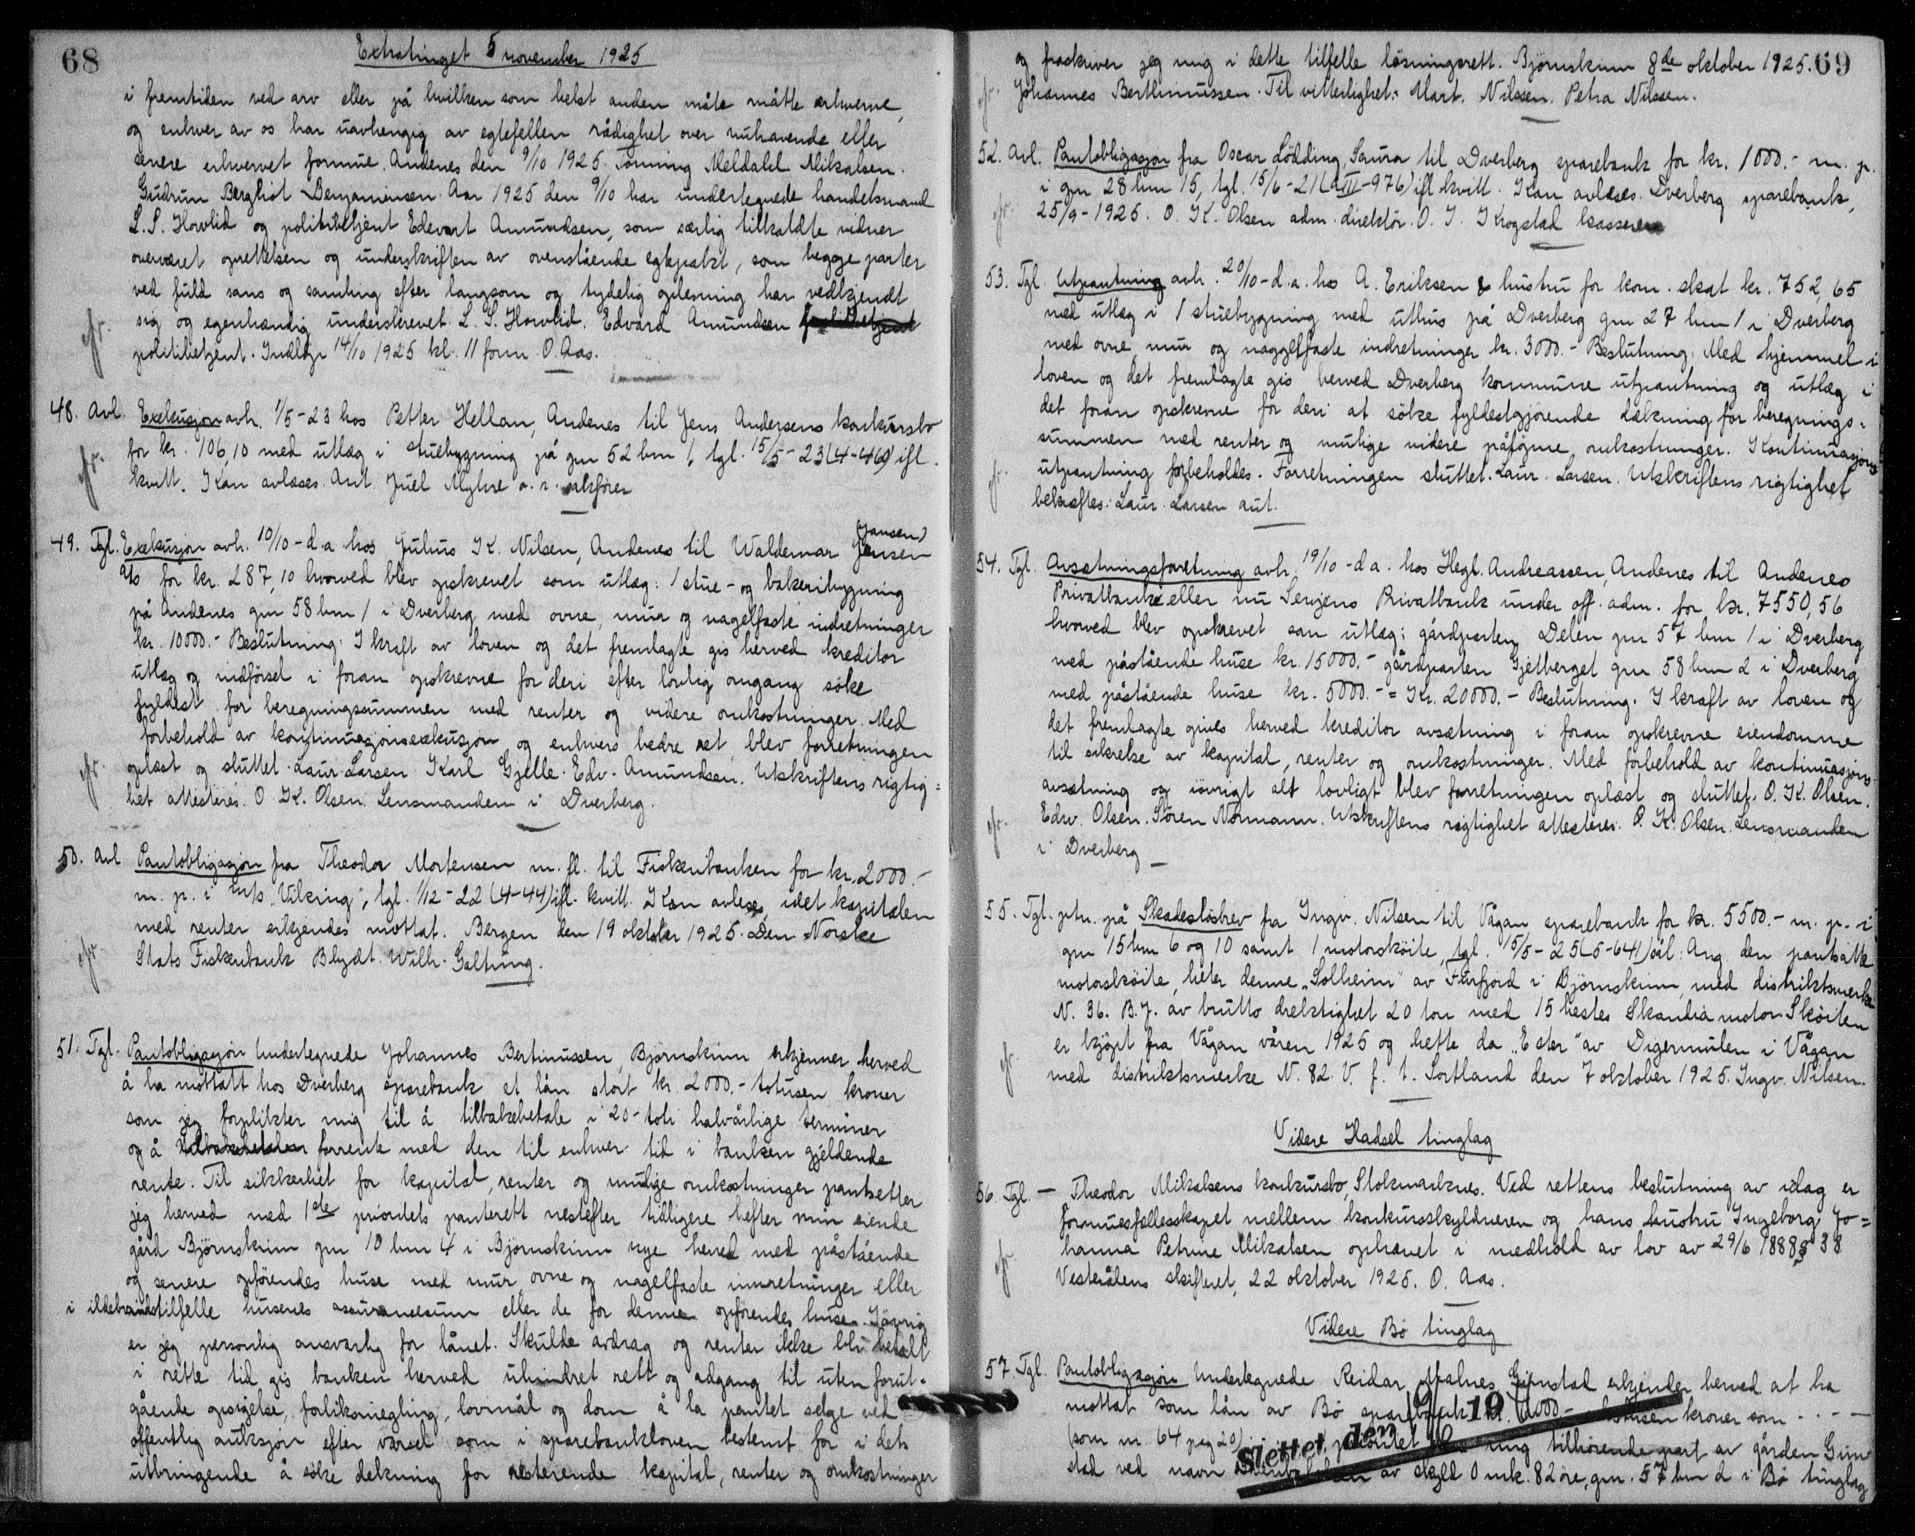 68
Extratinget 5 november 1925
i fremtiden ved arv eller på hvilken som helst anden måte måtte erhverve,
og enhver av os har uavhengig av egtefellen rådighet over nuhavende eller
senere erhvervet formue. Andenes den 9/10 1925. Tønning Meldahl Mikalsen.
Gudrun Bergliot Benjaminsen. Aar 1925 den 9/10 har undertegnede handelsmand
L. S. Hovlid og politibetjent Edevart Amundsen, som særlig tilkaldte vidner
overværet oprettelsen og underskriften av ovenstående egtepakt, som begge parter
ved fuld sans og samling efter langsom og tydelig oplesning har vedkjendt
sig og egenhændig underskrevet. L. S. Hovlid. Edvard Amundsen
politibetjent. Indlagt 14/10 1925 kl. 11 form. O. Aas.
48. Avl. Exekusjon avh. 1/5-23 hos Petter Hellan, Andenes til Jens Andersens konkursbo
for kr. 106,10 med utlæg i stuebygning på gnr 52 bnr 1, tgl. 15/5-23(4-460) ifl.
kvitt. Kan avlæses. Ant. Juel Myhre o.r. sakfører
49. Tgl. Exekusjon avh. 10/10-d.a hos Julius K. Nilsen, Andenes til Waldemar Jensen (Jansen)
A/s for kr. 287,10 hvorved blev opskrevet som utlæg: 1 stue- og bakeribygning
på Andenes gnr 58 bnr 1 i Dverberg med ovne, mur og nagelfaste indretninger
kr. 10000.- Beslutning: I kraft av loven og det fremlagte gis herved kreditor
utlæg og indførsel i foran opskrevne for deri efter lovlig omgang søke
fyldest for beregningssummen med renter og videre omkostninger. Med
forbehold av kontinuasjonsexekusjon og enhvers bedre ret, blev forretningen
oplæst og sluttet. Laur. Larsen Karl Gjelle. Edv. Amundsen. Utskriftens rigtig=
het attesteres. O K. Olsen. Lensmanden i Dverberg.
50. Avl Pantobligasjon fra Theodor Mortensen m. fl. til Fiskenbanken for kr. 2000.-
m. p. i m/s „Vikring", tgl. 1/12-22(4-44) ifl. kvitt. Kan avleses, idet kapitalen
med renter erkjendes mottat. Bergen den 19 oktober 1925. Den Norske
Stats Fiskeribank Blydt. Wilh. Galtung.
51. Tgl. Pantobligasjon Undertegnede Johannes Bertinussen, Bjørnskinn erkjenner herved
å ha mottatt hos Dverberg sparebank et lån stort kr. 2000.- totusen kroner
som jeg forplikter mig til å tilbakebetale i 20-toti halvårlige terminer
og å forrente med den til enhver tid i banken gjeldende
rente. Til sikkerhet for kapital, renter og mulige omkostninger pantsetter
jeg herved med 1ste prioritets panterett nestefter tidligere hefter min eiende
gård Bjørnskinn gnr 10 bnr 4 i Bjørnskinn nye herred med påstående
og senere opførendes huse med mur, ovne og nagelfaste innretninger eller
i ildebrandstilfelle husenes assuransesum eller de for denne opførendes huse. Iøvrig
er jeg personlig ansvarlig for lånet. Skulde avdrag og renter ikke bli betalt
i rette tid gis banken herved uhindret rett og adgang til uten forut-
gående opsigelse, forliksmegling, lovmål og dom å la pantet selge ved
offentlig auksjon efter varsel som i sparebankloven bestemt for i dets
utbringende å søke dekning for resterende kapital, renter og omkostninger
69
og fraskriver jeg mig i dette tilfelle løsningsrett. Bjørnskinn 8de oktober 1925.
Johannes Berthinussen. Til vitterlighet: Mart. Nilssen. Petra Nilssen.
52. Avl. Pantobligasjon fra Oscar Lødding, Saura til Dverberg sparebank for kr. 1000.- m. p.
i gnr 28 bnr 15, tgl. 15/6-21(AIII-976) ifl kvitt. Kan avleses. Dverberg sparebank,
25/9-1925. O. K. Olsen adm. direktør. O. J. Krogstad kasserer
53. Tgl. Utpantning avh. 20/10-d.a. hos A. Eriksen & hustru for kom. skat kr. 752,65
med utlæg i 1 stuebygning med uthus på Dverberg gnr 27 bnr 1 i Dverberg
med ovne, mur og naggelfaste indretninger kr. 3000.- Beslutning: Med hjemmel i
loven og det fremlagte gis herved Dverberg kommune utpantning og utlæg i
det foran opskrevne for deri at søke fyldestgjørende dækning for beregnings=
summen med renter og mulige videre påløpne omkostninger. Kontinuasjons
utpantning forbeholdes. Forretningen sluttet. Laur. Larsen. Utskriftens rigtighet
bekræftes: Laur. Larsen aut.
54. Tgl. Avsætningsforretning avh. 19/10-d a. hos Hegl. Andreassen, Andenes til Andenes
Privatbank eller nu Senjens Privatbank under off. adm. for kr. 7550,56
hvorved blev opskrevet som utlæg: gårdparten Delen gnr 57 bnr 1 i Dverberg
med påstående huse kr. 15000.- gårdparten Gjetberget gnr 58 bnr 2 i Dverberg
med påstående huse kr. 5000.- = Kr. 20000.- Beslutning. I kraft av loven og
det fremlagte gives herved kreditor avsætning i foran opskrevne eiendomme
til sikrelse av kapital, renter og omkostninger. Med forbehold av kontinuasjons
avsætning og iøvrigt alt lovligt blev forretningen oplæst og sluttet. O. K. Olsen.
Edv. Olsen. Søren Normann. Utskriftens rigtighet attesteres. O. K. Olsen. Lensmanden
i Dverberg
55. Tgl. ptn. på Skadesløsbrev fra Ingv. Nilsen til Vågan sparebank for kr. 5500.- m. p. i
gnr 15 bnr 6 og 10 samt 1 motorskøite, tgl. 15/5-25(5-641) sål: Ang den pantsatte
motorskøite, heter denne „Solheim" av Finfjord i Bjørnskinn, med distriktsmerke
N. 36. B.J. av brutto drektighet 20 ton med 15 hestes Skandia motor. Skøiten
er kjøpt fra Vågan våren 1925 og hette da „Ester" av Digermulen i Vågan
med distriktsmerke N. 82 V. f. t. Sortland den 7 oktober 1925. Ingv. Nilsen.
Videre Hadsel tinglag
56. Tgl. - Theodor Mikalsens konkursbo, Stokmarknes. Ved rettens beslutning av idag er
formuesfællesskapet mellem konkursskyldneren og hans hustru Ingeborg Jo=
hanna Petrine Mikalsen ophævet i medhold av lov av 29/6 1888 § 38.
Vesterålens skifteret, 22 oktober 1925. O. Aas.
Videre Bø tinglag
57 Tgl. Pantobligasjon Undertegnede Reidar Gimstad erkjender herved at ha
mottat som lån av Bø sparebank kroner som - - - -
(som nr. 64 pag 20) tilhørende part av gården Gim
stad ved navn av skyld 0 mk. 82 øre, gnr. 57 bnr 2 i Bø tinglag
Slettet den 19